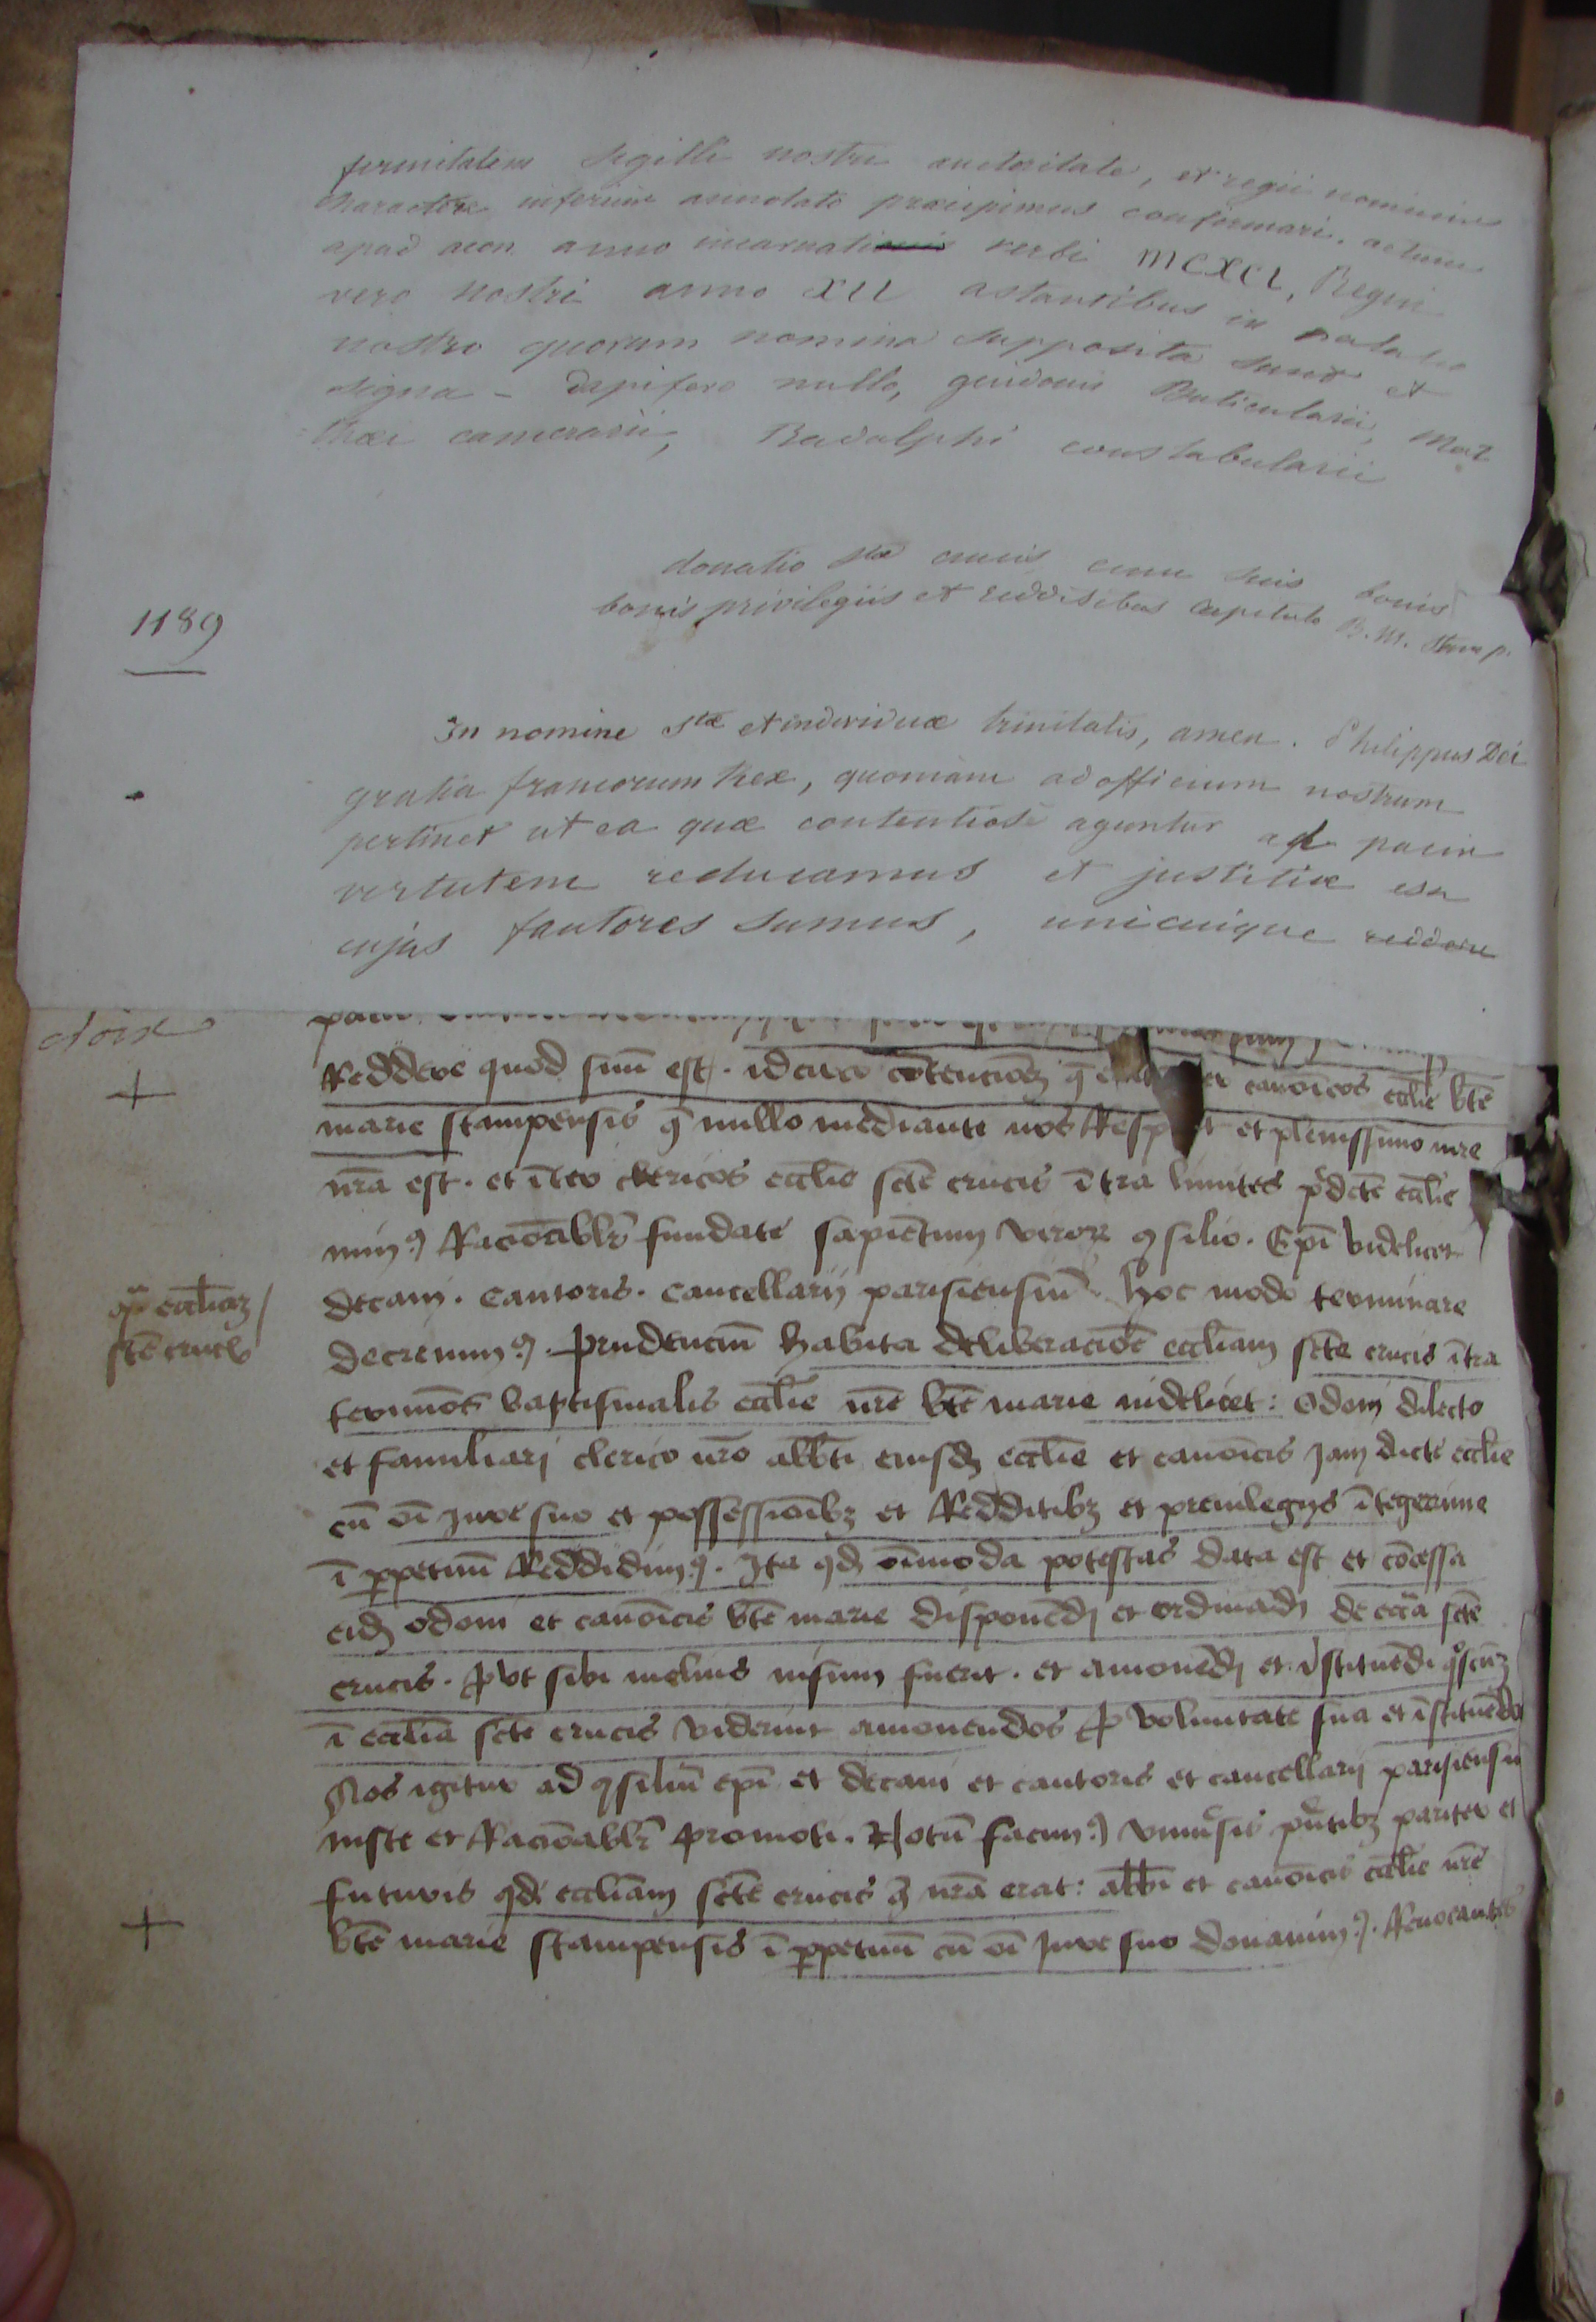 firmitatem sigilli nostri auctoritate, et regii nominis
charactere inferius annotato præcipimus confirmari. actum
apud acon anno incarnati verbi MCXCI, Regni
vero nostri anno XII astantibus in palatio
nostro quorum nomina supposita sunt et
signa - dapifero nullo, guidonis Buticularii, Mat
thæi camerarii, Radulphi constabularii
donatio stæ crucis cum suis bonis
bonis privilegiis et redditibus capitulo B. M. Stamp.
1189
In nomine stæ et individuæ trinitatis, amen. Philippus Dei
gratia francorum Rex, quoniam ad officium nostrum
pertinet ut ea quæ contentiosè aguntur ad pacis
virtutem reducamus et justitiæ
cujus fautores sumus, unicuique reddere
Reddere quod suū est. idcirco cōtencionẜ q̄ canōicos eccłie btē
marie stampensis q̄ nullo mediante nos et plenissimo iure
nr̄a est. et īter clericos eccłie sctē crucis ītra limites p̄dctē eccłie
nimꝰ Racōabłr fundate sapiētum virorꝝ ꝯsilio. Epī videlicet
decani. Cantoris. Cancellarij parisiensiū. hoc modo terminare
decrevimꝰ. Prudenciū habita deliberaciōe eccłiam sctē crucis ītra
qͣ eccłiaꝫ
sctē crucis
terminos baptismalis eccłie nr̄e btē marie videlicet: Odonj dilecto
et familiarj clerico nr̄o abbti eiusdꝫ eccłie et canōicis jam dicte eccłie
cū oī jure suo et possessiōibꝫ et Redditibꝫ et previlegijs ītegerrime
ī ꝑpetuū Reddidimꝰ. Ita qdꝫ oīmoda potestas data est et cōcessa
eidꝫ odoni et canōicis btē marie disponēdj et ordinādj de eccłia sctē
crucis. ꝓut sibi melius visum fuerit. et amovēdj et īstituēdi qͦscūqꝫ
ī eccłia sctē crucis viderint amovendos ꝓ voluntate sua et īstituēdos
Nos igitur ad ꝯsiliū epī et decani et cantoris et cancellarij parisiensiū
iuste et Racōabłr promoti. Notū facimꝰ vniūsis pn̄tibꝫ pariter et
futuris qdꝫ eccłiam sctē crucis q̄ nr̄a erat: abbi et canōicis eccłie nr̄e
btē marie stampensis ī ꝑpetuū cū oī jure suo donavimꝰ. Revocantes